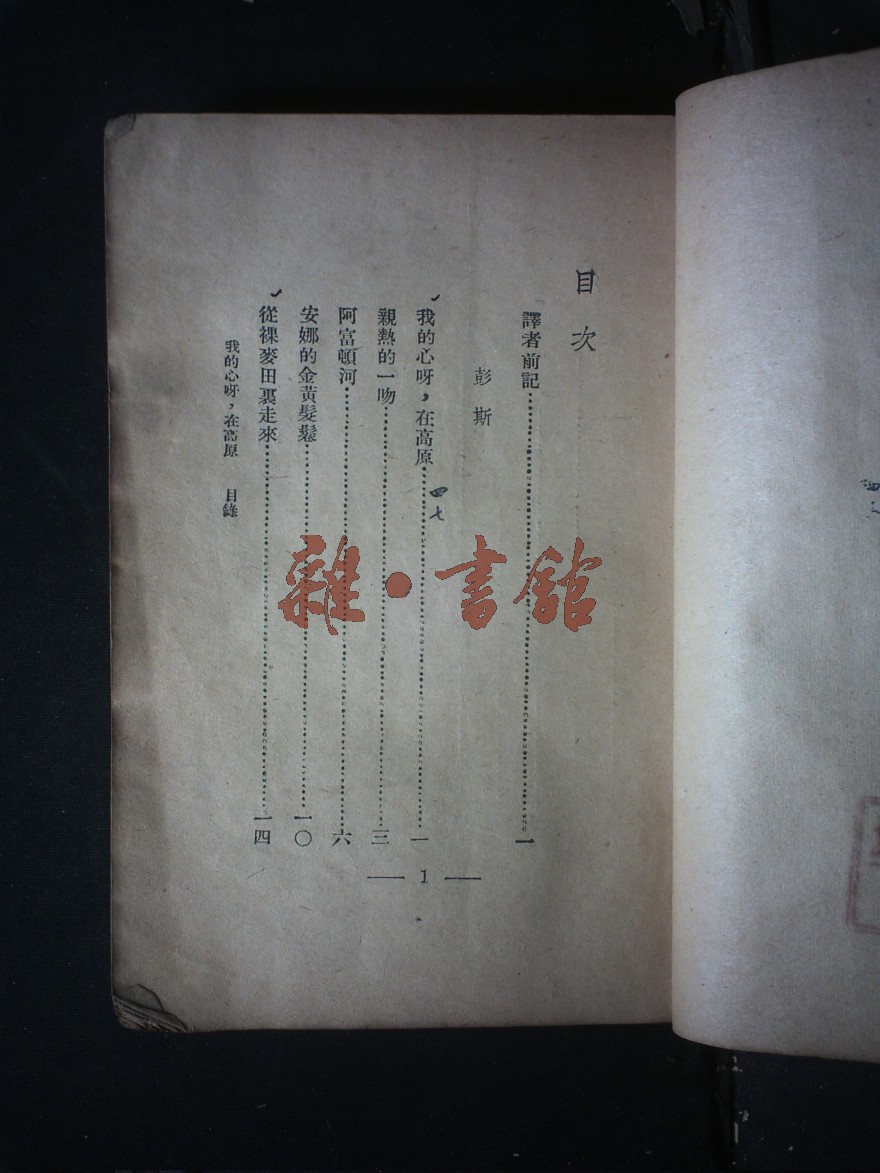 目次
譯者前記⋯⋯⋯⋯⋯⋯一
彭斯
我的心呀，在高原⋯⋯⋯⋯⋯⋯一
四七
親熱的一吻⋯⋯⋯⋯⋯⋯三
阿富頓河⋯⋯⋯⋯⋯⋯六
安娜的金黃髮鬆⋯⋯⋯⋯⋯⋯一〇
從裸麥田裏走來⋯⋯⋯⋯⋯⋯一四
我的心呀，在高原 目錄
— 1 —
雜·書館